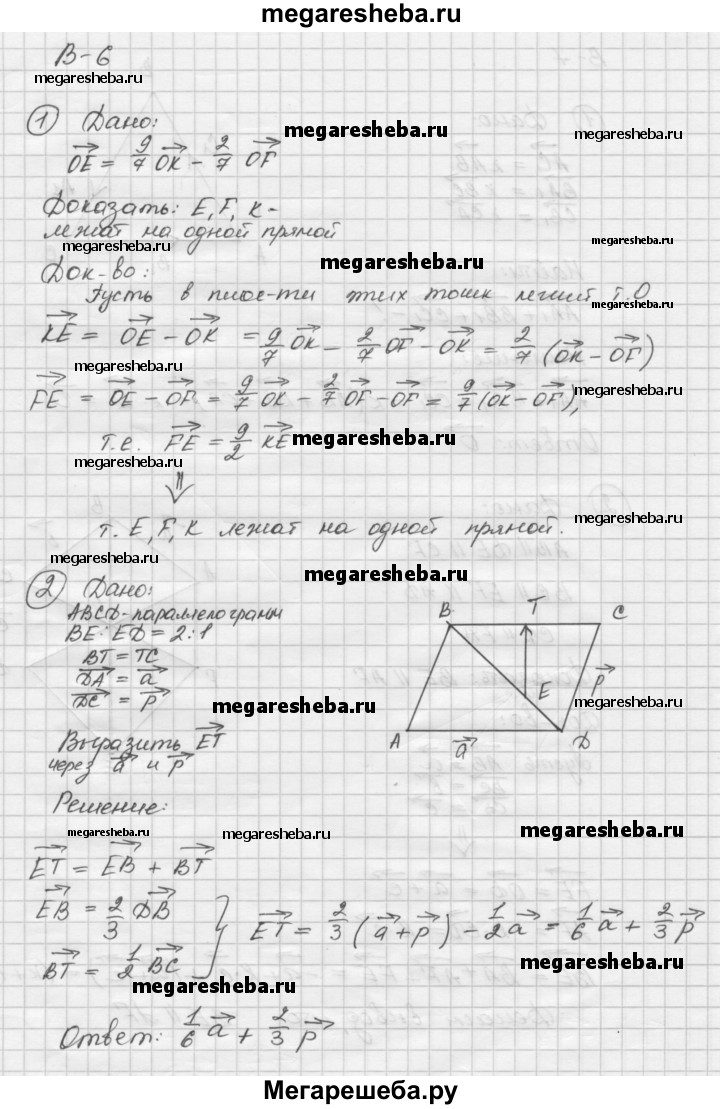 megaresheba.ru
В-6
megaresheba.ru
① Дано:
OE = 9/7 OK - 2/7 OF
megaresheba.ru
megaresheba.ru
Доказать: E, F, K -
лежат на одной прямой
megaresheba.ru
megaresheba.ru
megaresheba.ru
Док-во:
Пусть в плос-ти этих точек лежит т.О
KE = OE - OK = 9/7 OK - 2/7 OF - OK = 2/7 (OK - OF)
megaresheba.ru
megaresheba.ru
FE = OE - OF = 9/7 OK - 2/7 OF - OF = 9/7 (OK - OF),
т.е. FE = 9/2 KE
megaresheba.ru
megaresheba.ru
megaresheba.ru
⇓
т. E, F, K лежат на одной прямой.
megaresheba.ru
megaresheba.ru
megaresheba.ru
② Дано:
ABCD - параллелограмм
BE : ED = 2 : 1
BT = TC
DA = a
DC = p
B T C
E p
A a D
megaresheba.ru
megaresheba.ru
Выразить ET
через a и p
Решение:
megaresheba.ru
megaresheba.ru
megaresheba.ru
ET = EB + BT
EB = 2/3 DB
BT = 1/2 BC
ET = 2/3 (a + p) - 1/2 a = 1/6 a + 2/3 p
megaresheba.ru
megaresheba.ru
Ответ: 1/6 a + 2/3 p
Мегарешеба.ру